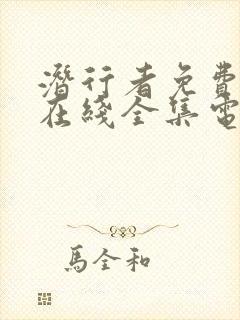 潛行者免費
在綫全集電
馬全和